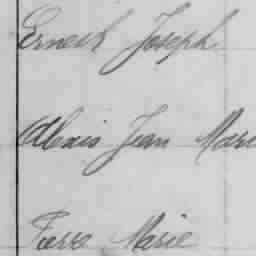 Ernest Joseph
Alexis Jean Mari
Pierre Marie